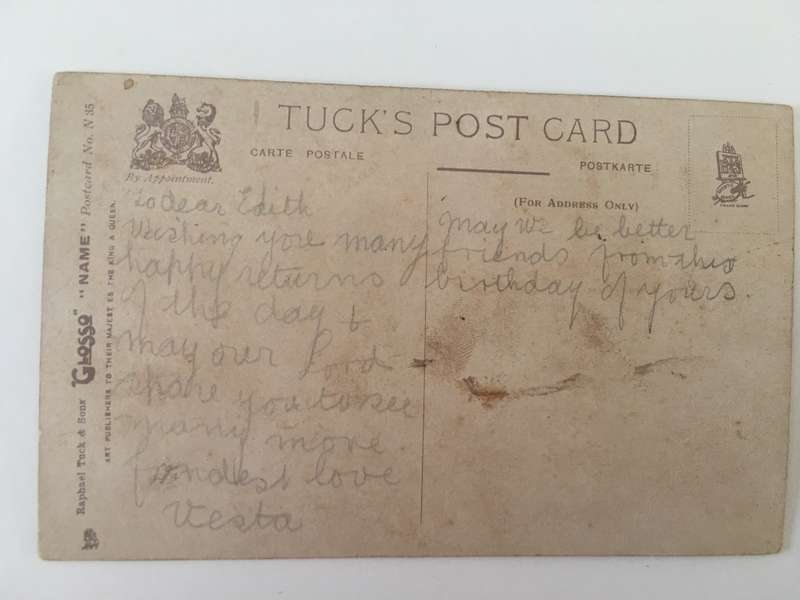 TUCK'S POST CARD
CARTE POSTALE
POSTKARTE
(FOR ADDRESS ONLY)
By Appointment.
TRADE MARK
To dear Edith
Wishing youre many
happy returns
of the day &
may our Lord
spare you to see
many more
fondest love
Vesta
May we be better
friends from this
birthday of yours.
Raphael Tuck & Sons "GLOSSO" "NAME" Postcard No. N 35
ART PUBLISHERS TO THEIR MAJESTIES THE KING & QUEEN.